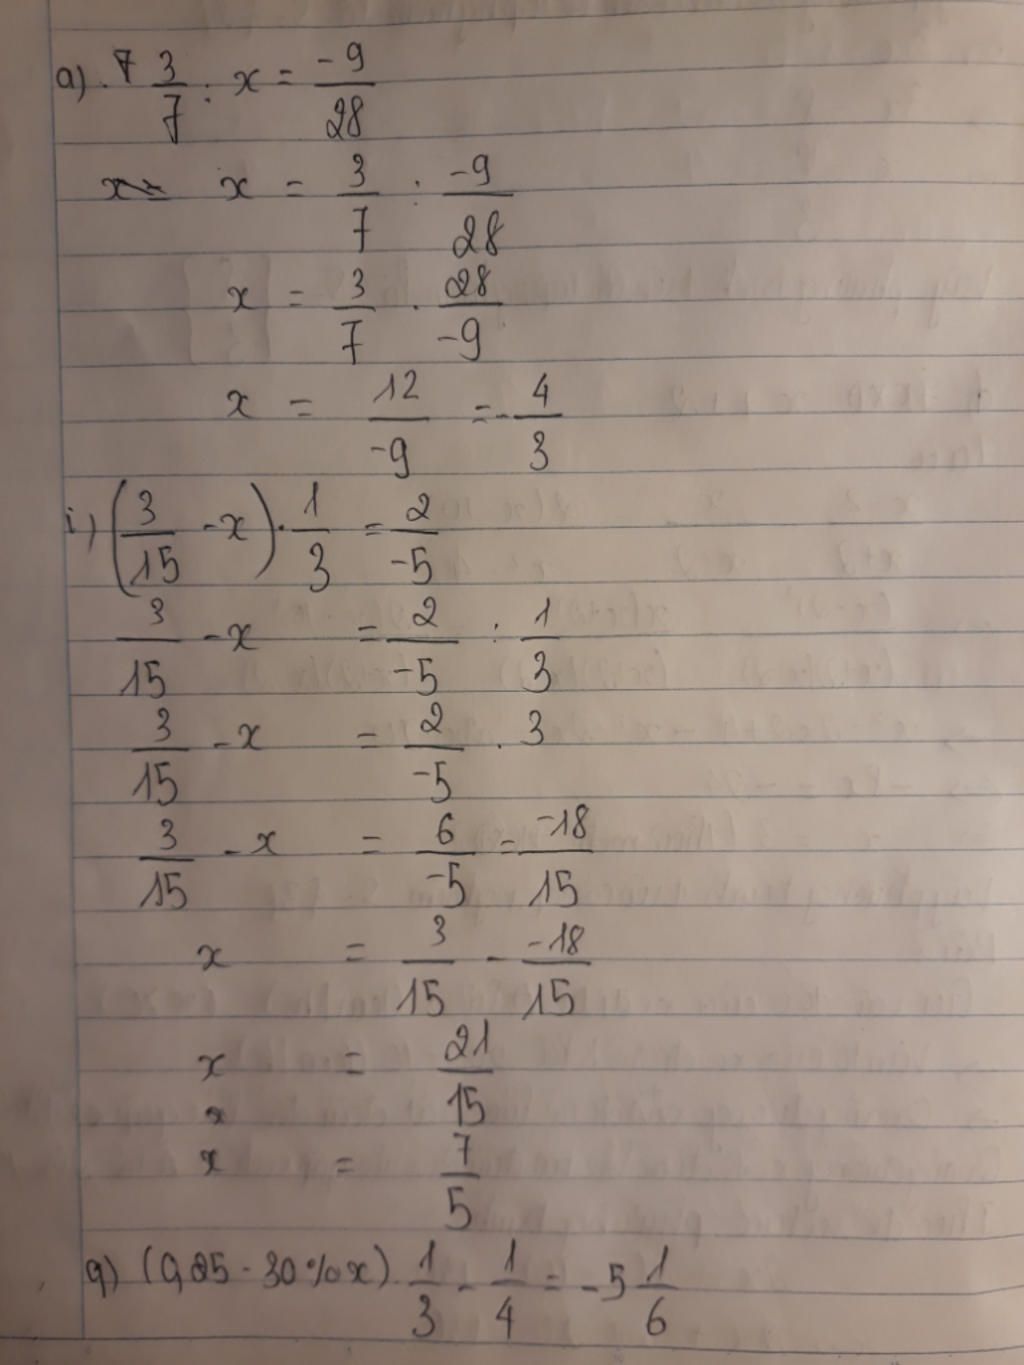 a) 7 3/7 : x = -9/28
x = 3/7 : -9/28
x = 3/7 . 28/-9
x = 12/-9 = -4/3
i) (3/15 - x) . 1/3 = 2/-5
3/15 - x = 2/-5 : 1/3
3/15 - x = 2/-5 . 3
3/15 - x = 6/-5 = -18/15
x = 3/15 - -18/15
x = 21/15
x
x = 7/5
q) (0,25 - 30% x) . 1/3 - 1/4 = -5 1/6